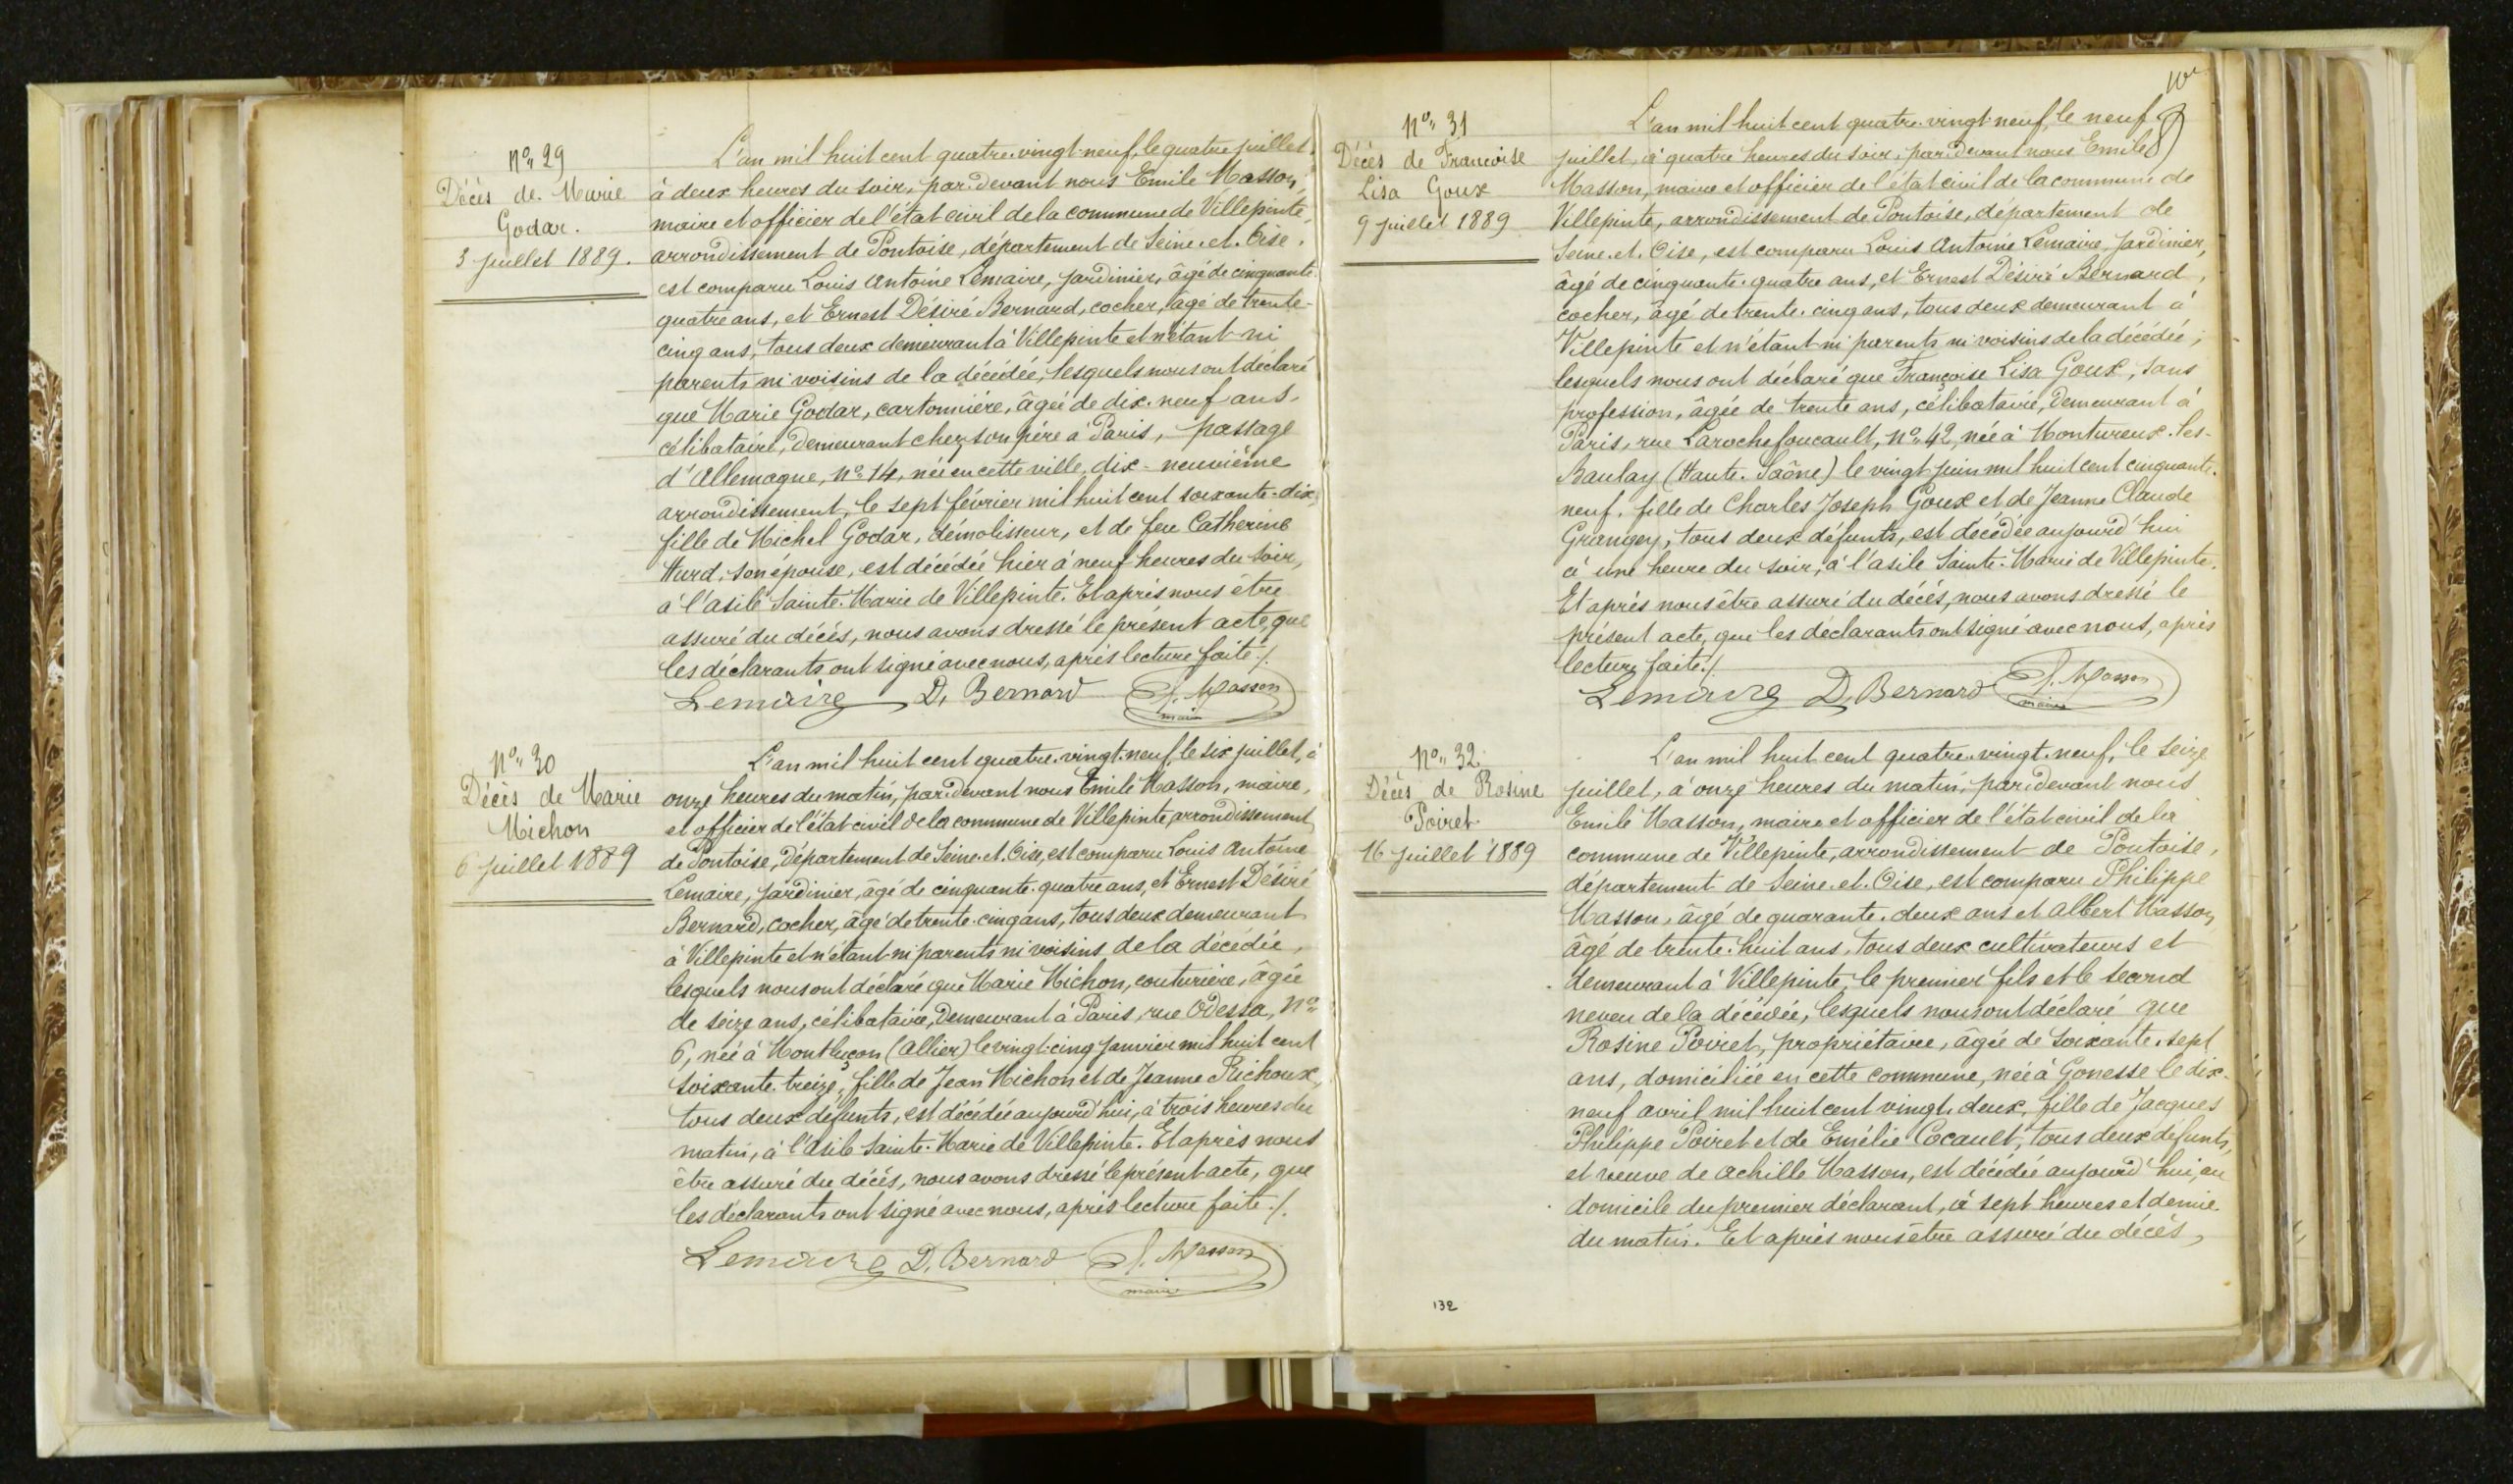 Nº 29
Décès de Marie
Godar.
3 Juillet 1889.
L'an mil huit cent quatre-vingt-neuf, le quatre juillet
à deux heures du soir, par devant nous Emile Masson,
maire et officier de l'état civil de la commune de Villepinte,
arrondissement de Pontoise, département de Seine-et-Oise,
est comparu Louis Antoine Lemaire, jardinier, âgé de cinquante-
quatre ans, et Ernest Désiré Bernard, cocher, âgé de trente-
cinq ans, tous deux demeurant à Villepinte et n'étant ni
parents ni voisins de la décédée, lesquels nous ont déclaré
que Marie Godar, cartonnière, âgée de dix-neuf ans,
célibataire, demeurant chez son père à Paris, passage
d'Allemagne, nº 14, née en cette ville, dix-neuvième
arrondissement, le sept février mil huit cent soixante-dix,
fille de Michel Godar, démolisseur, et de feu Catherine
Hurd, son épouse, est décédée hier à neuf heures du soir,
à l'asile Sainte-Marie de Villepinte. Et après nous être
assuré du décès, nous avons dressé le présent acte, que
les déclarants ont signé avec nous, après lecture faite./.
Lemaire D. Bernard E. Masson
maire
Nº 30
Décès de Marie
Michon
6 Juillet 1889
L'an mil huit cent quatre-vingt-neuf, le six juillet, à
onze heures du matin, par devant nous Emile Masson, maire,
et officier de l'état civil de la commune de Villepinte, arrondissement
de Pontoise, département de Seine-et-Oise, est comparu Louis Antoine
Lemaire, jardinier, âgé de cinquante-quatre ans, et Ernest Désiré
Bernard, cocher, âgé de trente-cinq ans, tous deux demeurant
à Villepinte et n'étant ni parents ni voisins de la décédée,
lesquels nous ont déclaré que Marie Michon, couturière, âgée
de seize ans, célibataire, demeurant à Paris, rue Odessa, nº
6, née à Montluçon (Allier) le vingt-cinq janvier mil huit cent
soixante-treize, fille de Jean Michon et de Jeanne Richoux,
tous deux défunts, est décédée aujourd'hui, à trois heures du
matin, à l'asile Sainte-Marie de Villepinte. Et après nous
être assuré du décès, nous avons dressé le présent acte, que
les déclarants ont signé avec nous, après lecture faite./.
Lemaire D. Bernard E. Masson
maire
10e
Nº 31
Décès de Francoise
Lisa Goux
9 Juillet 1889
L'an mil huit cent quatre-vingt-neuf, le neuf
juillet, à quatre heures du soir, par devant nous Emile
Masson, maire et officier de l'état civil de la commune de
Villepinte, arrondissement de Pontoise, département de
Seine-et-Oise, est comparu Louis Antoine Lemaire, jardinier,
âgé de cinquante-quatre ans, et Ernest Désiré Bernard,
cocher, âgé de trente-cinq ans, tous deux demeurant à
Villepinte et n'étant ni parents ni voisins de la décédée,
lesquels nous ont déclaré que Françoise Lisa Goux, sans
profession, âgée de trente ans, célibataire, demeurant à
Paris, rue Larochefoucault, nº 42, née à Montureux-les-
Baulay (Haute-Saône) le vingt juin mil huit cent cinquante-
neuf, fille de Charles Joseph Goux et de Jeanne Claude
Grangey, tous deux défunts, est décédée aujourd'hui
à une heure du soir, à l'asile Sainte-Marie de Villepinte.
Et après nous être assuré du décès, nous avons dressé le
présent acte, que les déclarants ont signé avec nous, après
lecture faite./.
Lemaire D. Bernard E. Masson
maire
Nº 32
Décès de Rosine
Poiret.
16 Juillet 1889
L'an mil huit cent quatre-vingt-neuf, le seize
juillet, à onze heures du matin, par devant nous
Emile Masson, maire et officier de l'état civil de la
commune de Villepinte, arrondissement de Pontoise,
département de Seine-et-Oise, est comparu Philippe
Masson, âgé de quarante-deux ans et Albert Masson,
âgé de trente-huit ans, tous deux cultivateurs et
demeurant à Villepinte, le premier fils et le second
neveu de la décédée, lesquels nous ont déclaré que
Rosine Poiret, propriétaire, âgée de soixante-sept
ans, domiciliée en cette commune, née à Gonesse le dix-
neuf avril mil huit cent vingt-deux, fille de Jacques
Philippe Poiret et de Emélie Cocault, tous deux défunts,
et veuve de Achille Masson, est décédée aujourd'hui, au
domicile du premier déclarant, à sept heures et demie
du matin. Et après nous être assuré du décès,
132